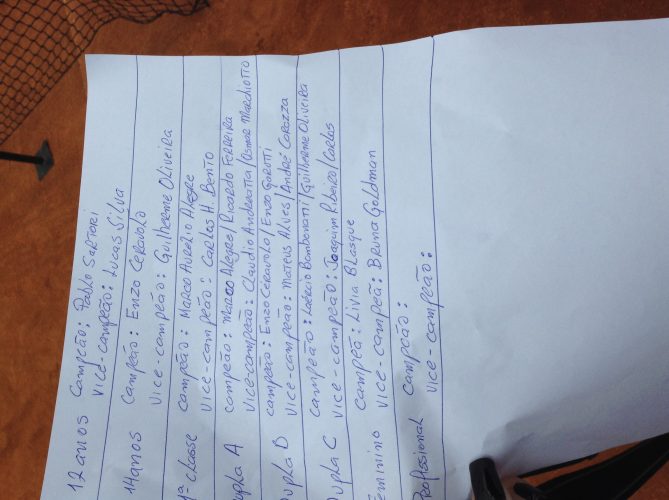 12 anos Campeão: Pablo Sartori
Vice-campeão: Lucas Silva
14 anos Campeão: Enzo Ceravolo
Vice-campeão: Guilherme Oliveira
1ª classe campeão: Marco Aurelio Alegre
Vice-campeão: Carlos H. Bento
Dupla A campeão: Marco Alegre/Ricardo Ferreira
Vice-campeão: Claudio Andreotta/Osmar Marchiotto
Dupla B campeão: Enzo Ceravolo/Enzo Garutti
Vice-campeão: Mateus Alves/André Corazza
Dupla C campeão: Laércio Bambonatti/Guilherme Oliveira
Vice-campeão: Joaquim Ribeiro/Carlos
Feminino Campeã: Livia Blasque
Vice-campeã: Bruna Goldman
Profissional Campeão:
Vice-campeão: